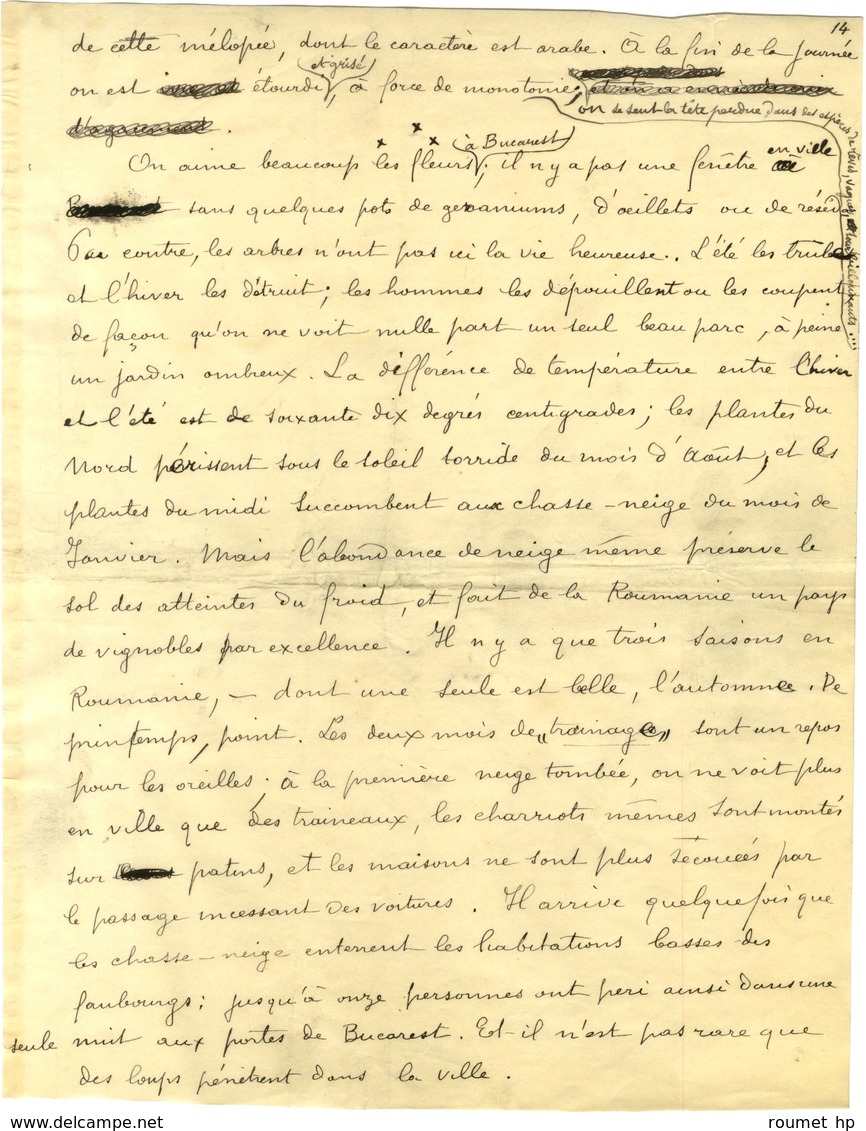 14
de cette mélopée, dont le caractère est arabe. À la fin de la journée
et grisé
on est étourdi, à force de monotonie;
on se sent la tête perdue dans des espèces de rêves, vagues,
.
à Bucarest
On aime beaucoup les fleurs; il n'y a pas une fenêtre en ville
sans quelques pots de geraniums, d'oeillets ou de réséda
Par contre, les arbres n'ont pas ici la vie heureuse.. L'été les brule
et l'hiver les détruit; les hommes les dépouillent ou les coupent
de façon qu'on ne voit nulle part un seul beau parc, à peine
un jardin ombreux. La différence de température entre l'hiver
et l'été est de soixante dix degrés centigrades; les plantes du
Nord périssent sous le soleil torride du mois d'Août, et les
plantes du midi succombent aux chasse-neige du mois de
Janvier. Mais l'abondance de neige même préserve le
sol des atteintes du froid, et fait de la Roumanie un pays
de vignobles par excellence. Il n'y a que trois saisons en
Roumanie, — dont une seule est belle, l'automne. De
printemps, point. Les deux mois de „trainage„ sont un repos
pour les oreilles; à la première neige tombée, on ne voit plus
en ville que des traineaux, les charriots mêmes sont montés
sur patins, et les maisons ne sont plus secouées par
le passage incessant des voitures. Il arrive quelquefois que
les chasse-neige enterrent les habitations basses des
faubourgs; jusqu'à onze personnes ont peri ainsi dans une
seule nuit aux portes de Bucarest. Et-il n'est pas rare que
des loups pénètrent dans la ville.
roumet hp